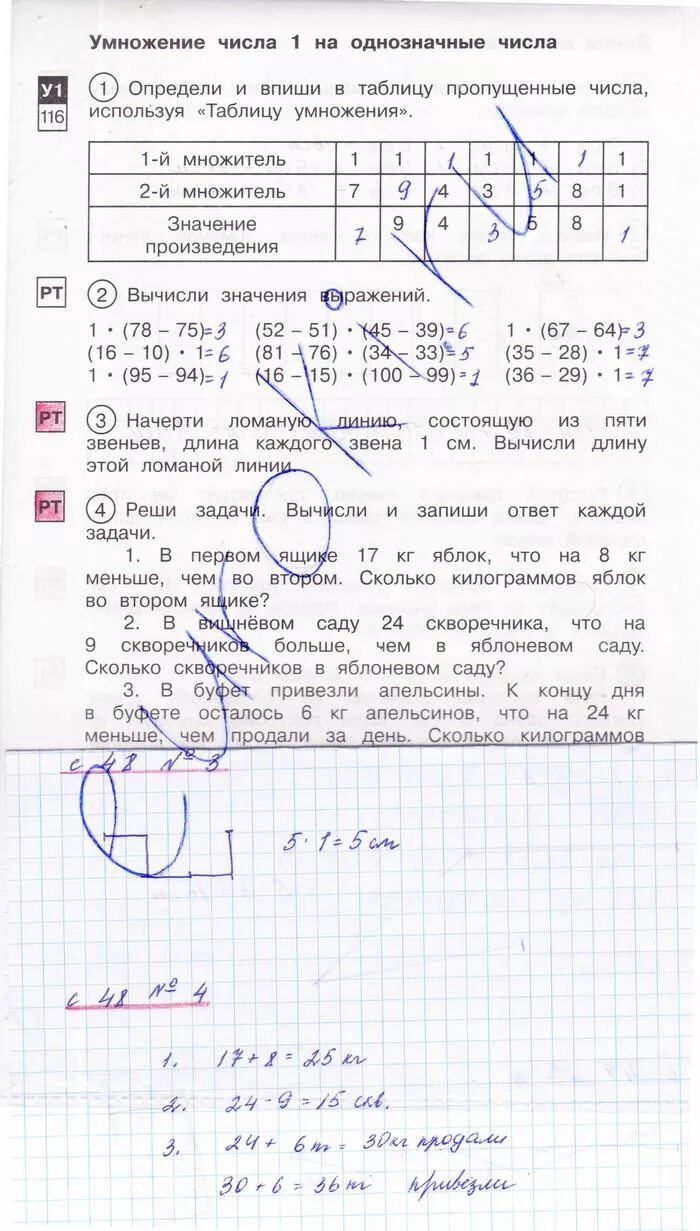 Умножение числа 1 на однозначные числа
У1
116
1 Определи и впиши в таблицу пропущенные числа,
используя «Таблицу умножения».
1-й множитель 1 1 1 1 1 1 1
2-й множитель 7 9 4 3 5 8 1
Значение произведения 7 9 4 3 5 8 1
РТ
2 Вычисли значения выражений.
1 · (78 – 75)=3 (52 – 51) · (45 – 39)=6 1 · (67 – 64)=3
(16 – 10) · 1=6 (81 – 76) · (34 – 33)=5 (35 – 28) · 1=7
1 · (95 – 94)=1 (16 – 15) · (100 – 99)=1 (36 – 29) · 1=7
РТ
3 Начерти ломаную линию, состоящую из пяти
звеньев, длина каждого звена 1 см. Вычисли длину
этой ломаной линии.
РТ
4 Реши задачи. Вычисли и запиши ответ каждой
задачи.
1. В первом ящике 17 кг яблок, что на 8 кг
меньше, чем во втором. Сколько килограммов яблок
во втором ящике?
2. В вишнёвом саду 24 скворечника, что на
9 скворечников больше, чем в яблоневом саду.
Сколько скворечников в яблоневом саду?
3. В буфет привезли апельсины. К концу дня
в буфете осталось 6 кг апельсинов, что на 24 кг
меньше, чем продали за день. Сколько килограммов
с 48 № 3
5 · 1 = 5 см
с 48 № 4
1. 17 + 8 = 25 кг
2. 24 - 9 = 15 скв.
3. 24 + 6 = 30 кг продали
30 + 6 = 36 привезли